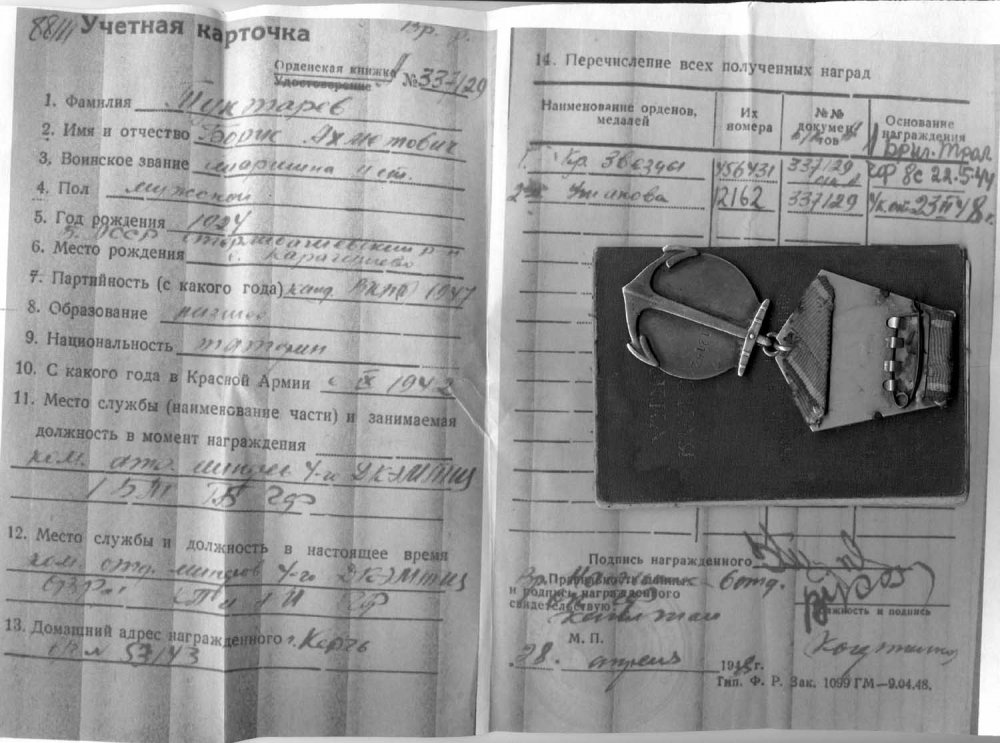 88/11 Учетная карточка
Вр. р.
Орденская книжка
Удостоверение № 337129
1. Фамилия Муктаров
2. Имя и отчество Борис Ахметович
3. Воинское звание старшина II ст.
4. Пол мужской
5. Год рождения 1924
6. Место рождения
с. Карагушево
7. Партийность (с какого года) канд. ВКПб 1947
8. Образование низшее
9. Национальность татарин
10. С какого года в Красной Армии с IX 1942
11. Место службы (наименование части) и занимаемая
должность в момент награждения
ком. отд. минеров 4-го ДКЭМТЩ
1 БТ ЧФ
12. Место службы и должность в настоящее время
ком. отд. минеров 4-го ДКЭМТЩ
ЧФ
13. Домашний адрес награжденного г. Керчь
53/43
14. Перечисление всех полученных наград
Наименование орденов, медалей
Их номера
№№ документов
Основание награждения
1. Кр. Звезды 456431 337129 ЧФ 8с 22.5.44
2. Ушакова 12162 337129 Указ 23 48 г.
Подпись награжденного
Правильность данных
и подпись награжденного
свидетельствую:
Вр. Начальник 6 отд.
Капитан
должность и подпись
М. П.
28. апреля 1948 г.
Тип. Ф. Р. Зак. 1099 ГМ—9.04.48.